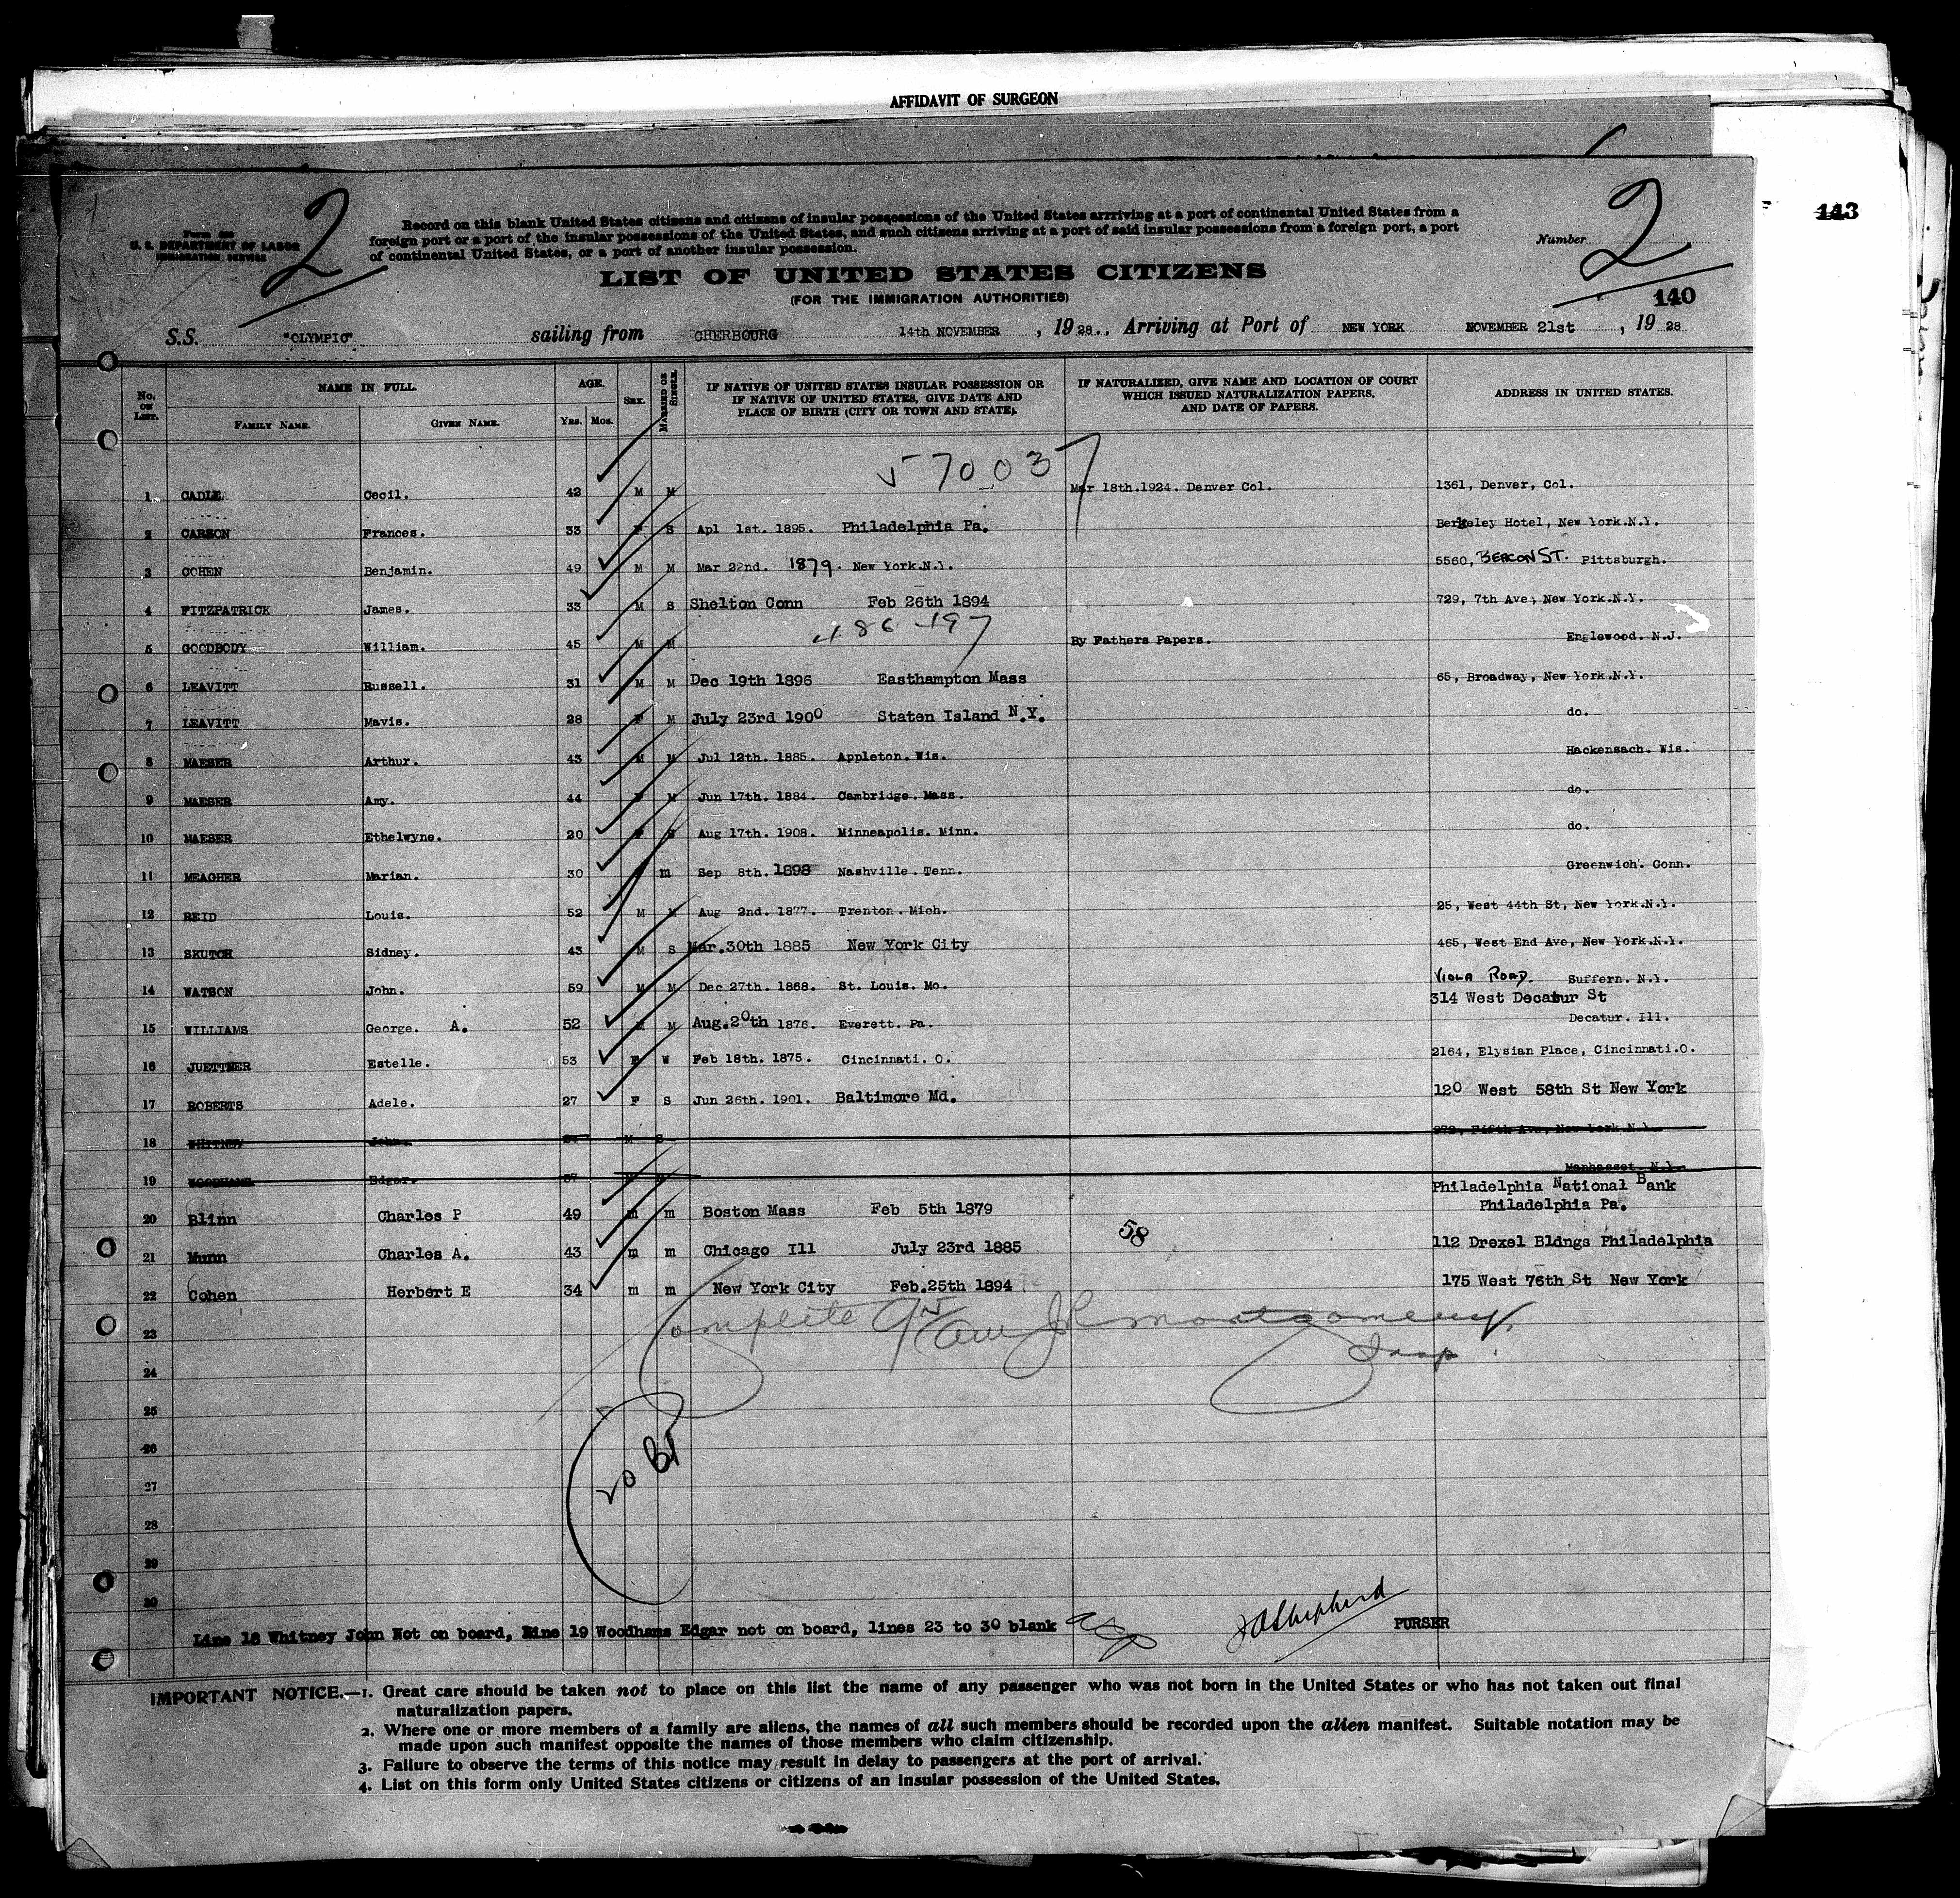 AFFIDAVIT OF SURGEON
143
2
2
U. S. DEPARTMENT OF LABOR
IMMIGRATION SERVICE
Record on this blank United States citizens and citizens of insular possessions of the United States arrriving at a port of continental United States from a
foreign port or a port of the insular possessions of the United States, and such citizens arriving at a port of said insular possessions from a foreign port, a port
of continental United States, or a port of another insular possession.
Number
LIST OF UNITED STATES CITIZENS
(FOR THE IMMIGRATION AUTHORITIES)
140
S.S. "OLYMPIC" sailing from CHERBOURG 14th NOVEMBER , 19 28. Arriving at Port of NEW YORK NOVEMBER 21st , 19 28
No. ON LIST. NAME IN FULL. AGE. SEX. MARRIED OR SINGLE. IF NATIVE OF UNITED STATES INSULAR POSSESSION OR IF NATIVE OF UNITED STATES, GIVE DATE AND PLACE OF BIRTH (CITY OR TOWN AND STATE). IF NATURALIZED, GIVE NAME AND LOCATION OF COURT WHICH ISSUED NATURALIZATION PAPERS, AND DATE OF PAPERS. ADDRESS IN UNITED STATES.
FAMILY NAME. GIVEN NAME. Yrs. Mos.
1 CADLE Cecil. 42 M M Mar 18th.1924. Denver Col. 1361, Denver, Col.
2 CARSON Frances. 33 F S Apl 1st. 1895. Philadelphia Pa. Berkeley Hotel, New York.N.Y.
3 COHEN Benjamin. 49 M M Mar 22nd. 1879. New York.N.Y. 5560, BEACON ST. Pittsburgh.
4 FITZPATRICK James. 33 M S Shelton Conn Feb 26th 1894 729, 7th Ave, New York.N.Y.
5 GOODBODY William. 45 M M By Fathers Papers. Englewood. N.J.
6 LEAVITT Russell. 31 M M Dec 19th 1896 Easthampton Mass 65, Broadway, New York.N.Y.
7 LEAVITT Mavis. 28 F M July 23rd 1900 Staten Island N.Y. do.
8 MAESER Arthur. 43 M M Jul 12th. 1885. Appleton. Wis. Hackensach. Wis.
9 MAESER Amy. 44 F M Jun 17th. 1884. Cambridge. Mass. do.
10 MAESER Ethelwyne. 20 F S Aug 17th. 1908. Minneapolis. Minn. do.
11 MEAGHER Marian. 30 m Sep 8th. 1898 Nashville. Tenn. Greenwich. Conn.
12 REID Louis. 52 M M Aug 2nd. 1877. Trenton. Mich. 25, West 44th St, New York.N.Y.
13 SKUTCH Sidney. 43 M S Mar. 30th 1885 New York City 465, West End Ave, New York.N.Y.
14 WATSON John. 59 M M Dec 27th. 1868. St. Louis. Mo. VIOLA ROAD. Suffern. N.Y.
314 West Decatur St
15 WILLIAMS George. A. 52 M M Aug.20th 1876. Everett. Pa. Decatur. Ill.
16 JUETTNER Estelle. 53 F W Feb 18th. 1875. Cincinnati. O. 2164, Elysian Place, Cincinnati.O.
17 ROBERTS Adele. 27 F S Jun 26th. 1901. Baltimore Md. 120 West 58th St New York
18 WHITNEY John. M S Fifth Ave, New York.N.Y.
19 WOODHAMS Edgar. 37 Manhasset. N.Y.
Philadelphia National Bank
20 Blinn Charles P 49 m m Boston Mass Feb 5th 1879 Philadelphia Pa.
21 Munn Charles A. 43 m m Chicago Ill July 23rd 1885 58 112 Drexel Bldngs Philadelphia
22 Cohen Herbert E 34 m m New York City Feb.25th 1894 175 West 76th St New York
23 Complete Montgomery
Insp
24
25
26
27
28
29
30
Line 18 Whitney John Not on board, Line 19 Woodhams Edgar not on board, lines 23 to 30 blank JOShepherd PURSER
IMPORTANT NOTICE.—1. Great care should be taken not to place on this list the name of any passenger who was not born in the United States or who has not taken out final
naturalization papers.
2. Where one or more members of a family are aliens, the names of all such members should be recorded upon the alien manifest. Suitable notation may be
made upon such manifest opposite the names of those members who claim citizenship.
3. Failure to observe the terms of this notice may result in delay to passengers at the port of arrival.
4. List on this form only United States citizens or citizens of an insular possession of the United States.